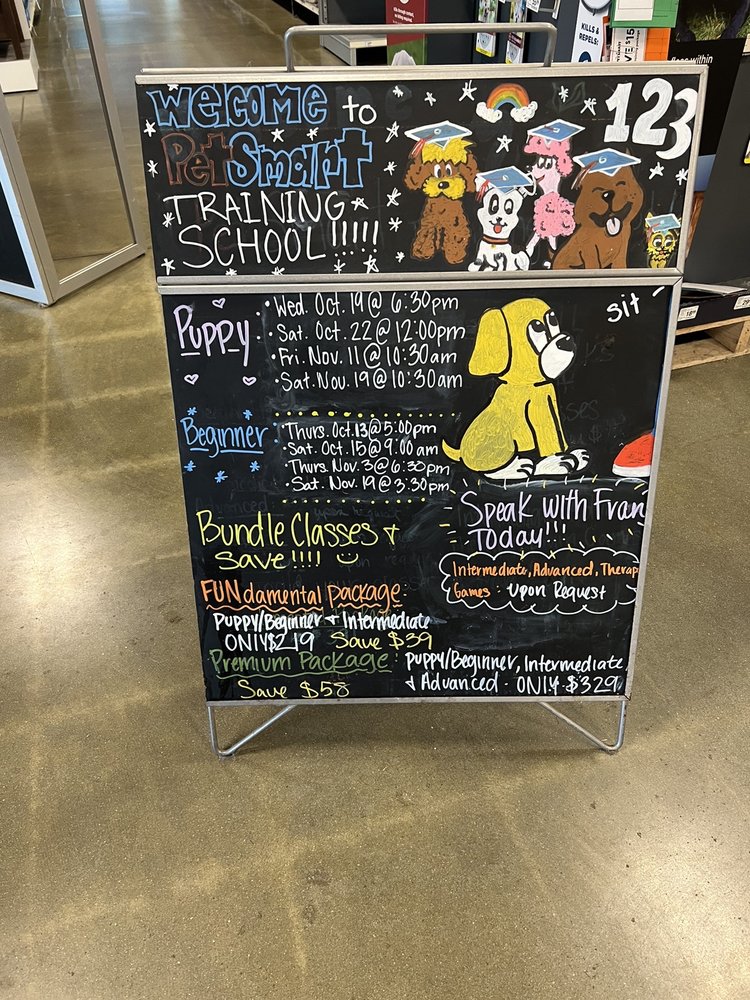 Welcome to
PetSmart
TRAINING
SCHOOL!!!!!
123
Puppy
• Wed. Oct. 19 @ 6:30pm
• Sat. Oct. 22 @ 12:00pm
• Fri. Nov. 11 @ 10:30am
• Sat. Nov. 19 @ 10:30am
sit
Beginner
• Thurs. Oct. 13 @ 5:00pm
• Sat. Oct. 15 @ 9:00 am
• Thurs. Nov. 3 @ 6:30pm
• Sat. Nov. 19 @ 3:30pm
Speak with Fran
Today!!!
Bundle Classes +
Save!!!!
Intermediate, Advanced, Therap
Games: Upon Request
FUNdamental package:
Puppy/Beginner + Intermediate
ONlY $219 Save $39
Premium Package: puppy/Beginner, Intermediate,
Save $58 + Advanced - ONlY $329
KILLS &
REPELS: